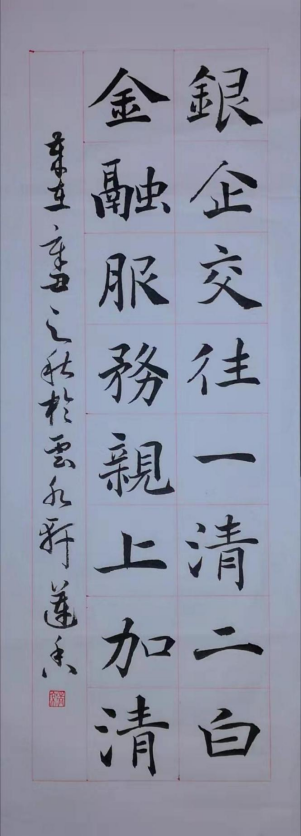 銀企交往一清二白
金融服務親上加清
歲在辛丑之秋於雲水軒蓮香